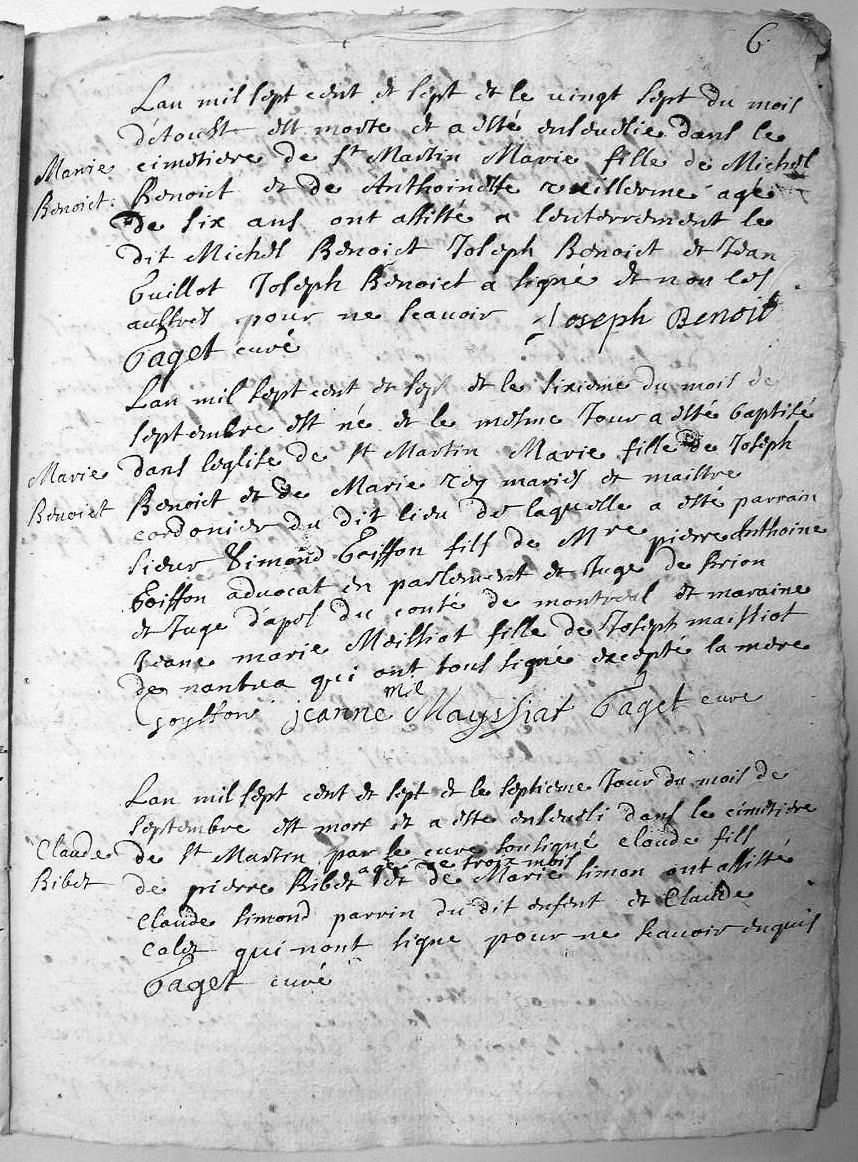 6
Lan mil sept cent et sept et le vingt sept du mois
d'etoust est morte et a esté ensevelie dans le
Marie cimetiere de St Martin Marie fille de Michel
Benoict Benoict et de Anthoinette reuillerme agé
de six ans ont assisté a lenterrement le
dit Michel Benoict Joseph Benoict et Jean
Guillot Joseph Benoict a signé et non les
aultres pour ne scavoir Joseph Benoit
Paget curé
Lan mil sept cent et sept et le sixieme du mois de
septembre est né et le mesme Jour a esté baptisé
Marie dans leglise de St Martin Marie fille de Joseph
Benoict Benoict et de Marie rey mariés et maistre
cordonier du dit lieu de laquelle a esté parrain
sieur Simond Goiffon fils de Mre pierre Anthoine
Goiffon advocat en parlement et Juge de brion
et Juge d'apel du conté de montreal et maraine
Jeane marie Meissiat fille de Joseph maissiat
de nantua qui ont tous signé excepté la mere
Goyffon jeanne mie Mayssiat Paget curé
Lan mil sept cent et sept et le septieme Jour du mois de
septembre est mort et a este enseveli dans le cimetiere
Claude de St Martin par le curé soussigné claude fils
agé de troix mois
Ribet de pierre Ribet et de Marie simon ont assisté
Claude simond parrin du dit enfent et Claude
Calet qui nont signe pour ne scavoir enquis
Paget curé